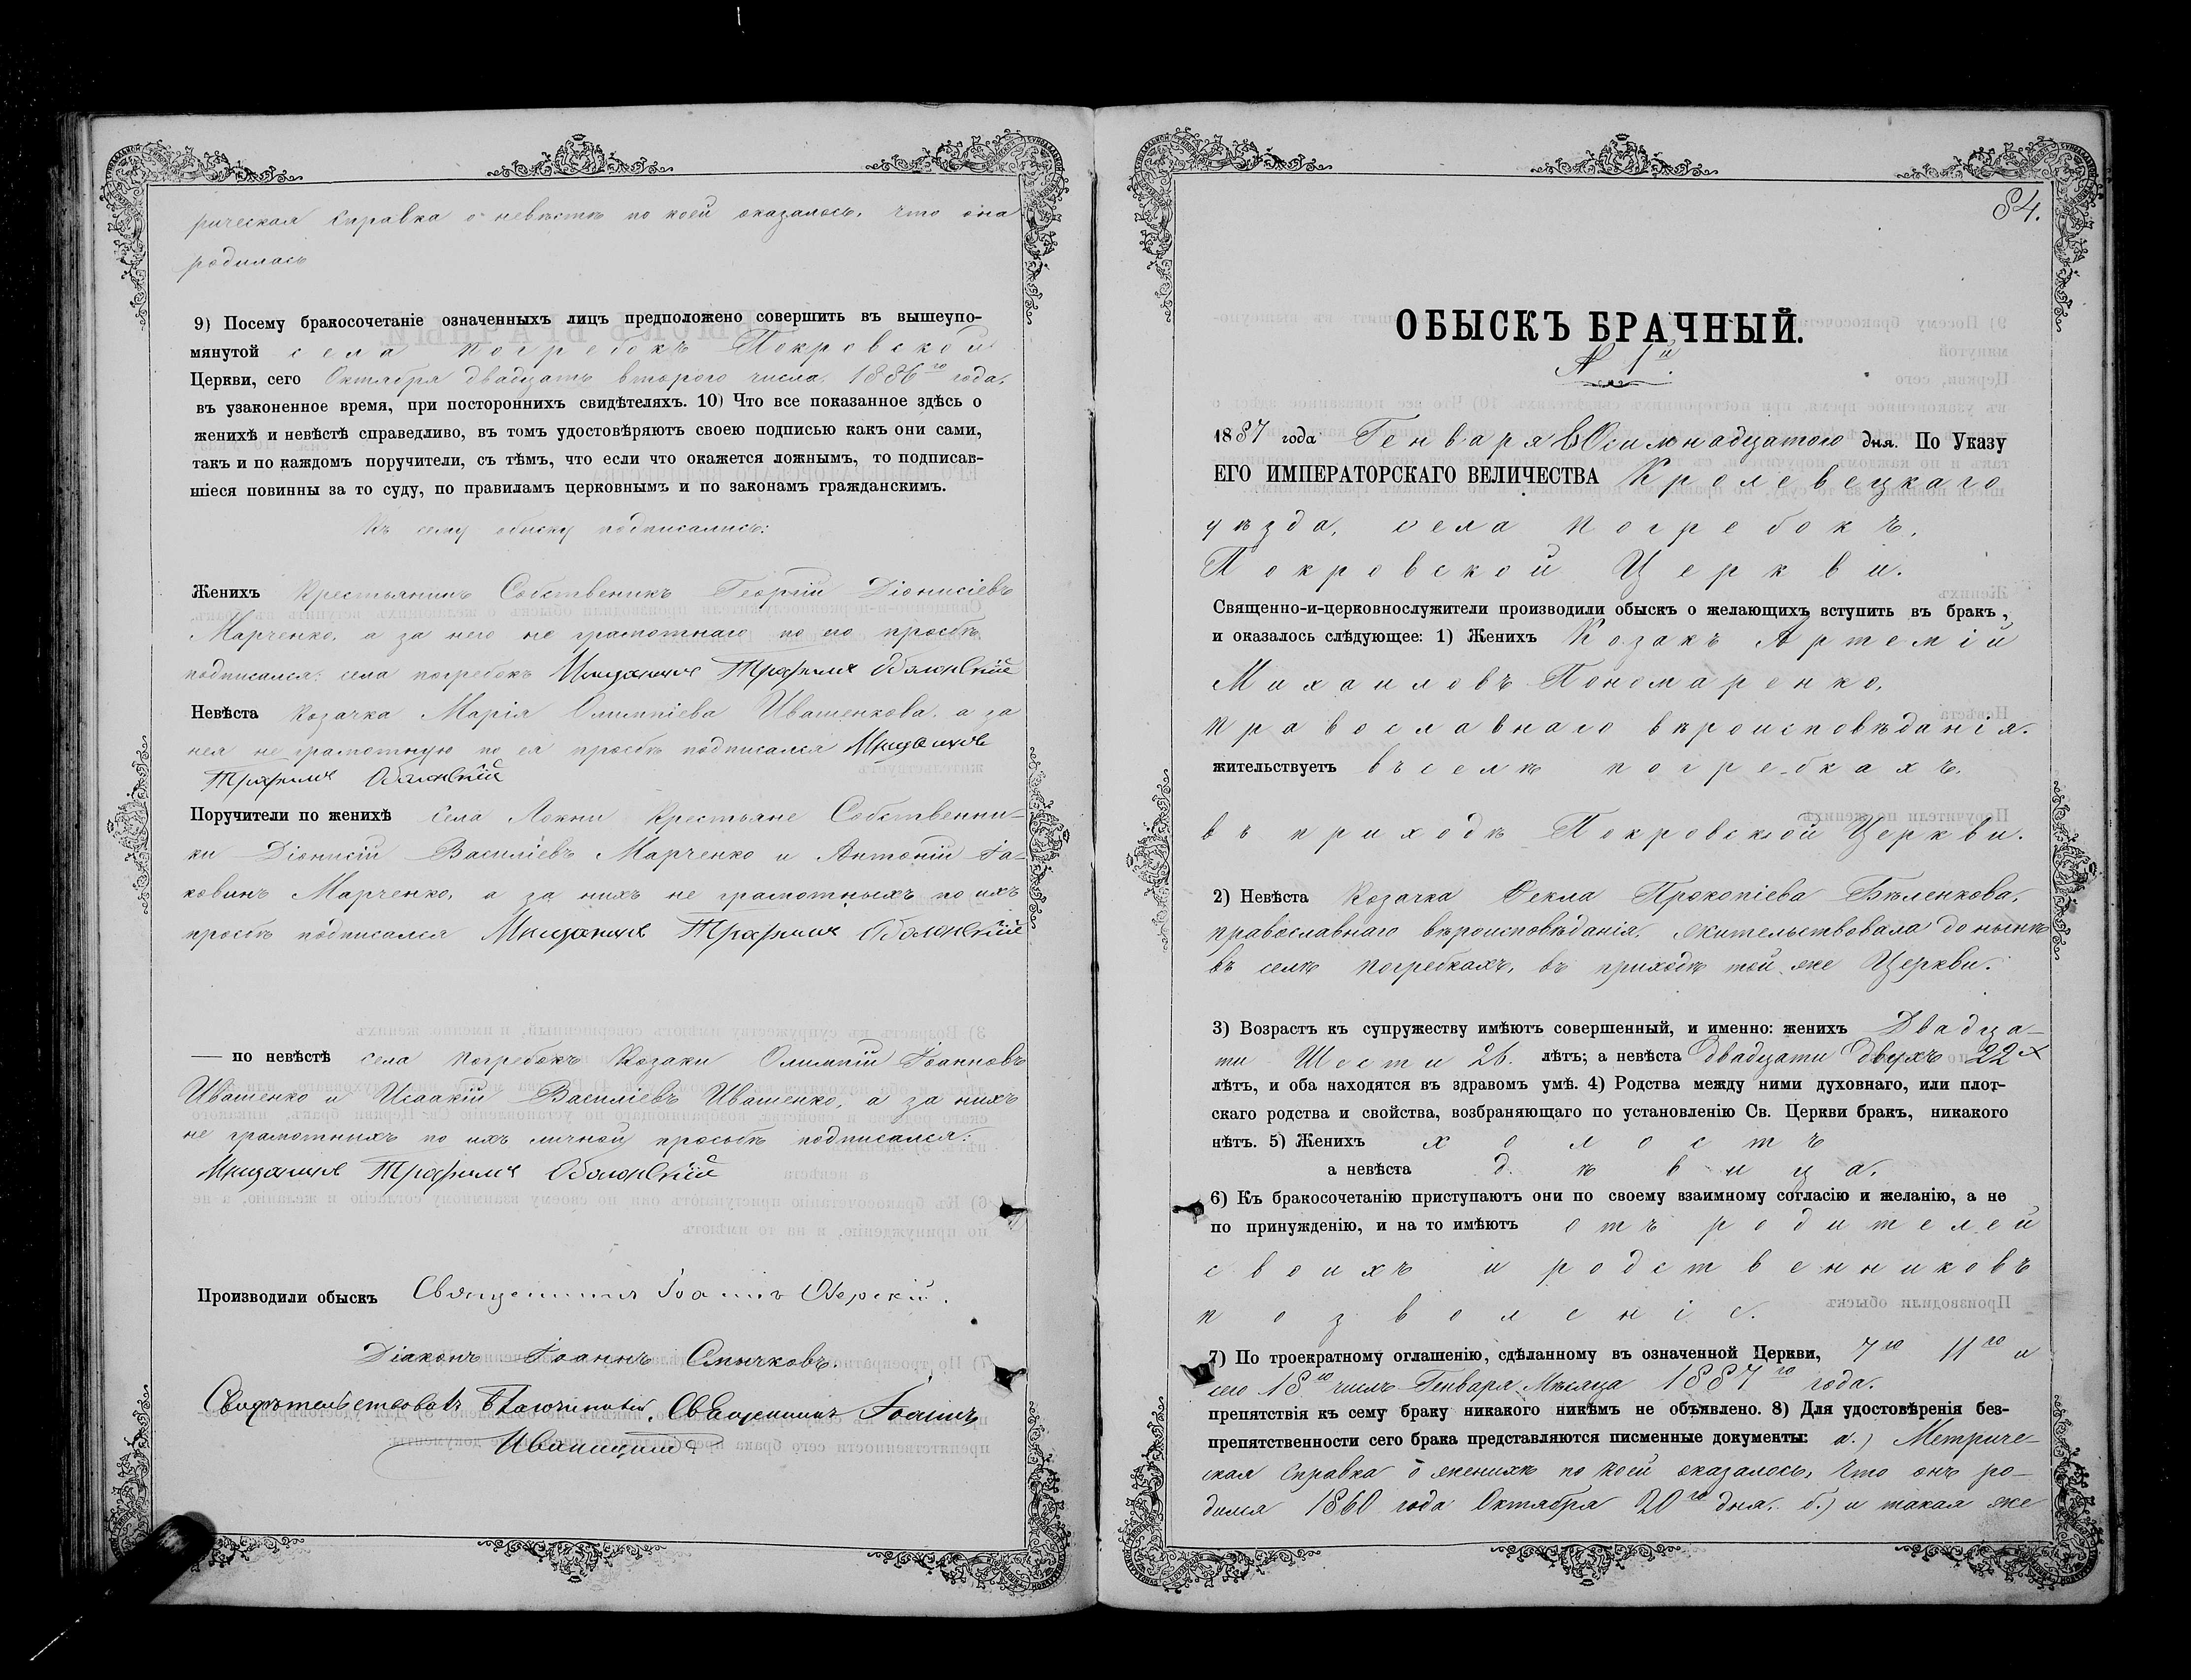 рическая справка о невѣстѣ по коей оказалось, что она
родилась
9) Посему бракосочетаніе означенныхъ лицъ предположено совершить въ вышеупо-
мянутой села Погребокъ Покровской
Церкви, сего Октября двадцать втораго числа, 1886го года,
въ узаконенное время, при постороннихъ свидѣтеляхъ. 10) Что все показанное здѣсь о
женихѣ и невѣстѣ справедливо, въ томъ удостовѣряютъ своею подписью какъ они сами,
такъ и по каждомъ поручители, съ тѣмъ, что если что окажется ложнымъ, то подписав-
шіеся повинны за то суду, по правиламъ церковнымъ и по законамъ гражданскимъ.
Къ сему обыску подписались:
Женихъ Крестьянинъ Собственникъ Георгій Діонисіевъ
Марченко, а за него не грамотнаго по его просьбѣ
подписался: села погребокъ Мищанинъ Трофимъ Оболонскій
Невѣста Козачка Марія Олимпіева Ивашенкова, а за
нея не грамотную по ея просьбѣ подписался Мищанинъ
Трофимъ Оболонскій
Поручители по женихѣ Села Локни Крестьяне Собственни-
ки Діонисій Василіевъ Марченко и Антоній Іа-
ковлевъ Марченко, а за нихъ не грамотныхъ по ихъ
просьбѣ подписался Мищанинъ Трофимъ Оболонскій
— по невѣстѣ Села Погребокъ Козаки Олимпій Іоанновъ
Ивашенко и Исаакій Василіевъ Ивашенко, а за нихъ
не грамотныхъ по ихъ личной просьбѣ подписался:
Мищанинъ Трофимъ Оболонскій
Производили обыскъ Священникъ Іоаннъ
Діаконъ Іоаннъ Смычковъ.
Свидѣтельствовалъ Благочинный, Священникъ Іоаннъ
84.
ОБЫСКЪ БРАЧНЫЙ.
№ 1й.
1887 года Генваря Восимнадцатого дня. По Указу
ЕГО ИМПЕРАТОРСКАГО ВЕЛИЧЕСТВА Кролевецкаго
уѣзда, села Погребокъ,
Покровской Церкви.
Священно-и-церковнослужители производили обыскъ о желающихъ вступить въ бракъ,
и оказалось слѣдующее: 1) Женихъ Козакъ Артемій
Михаиловъ Пономаренко,
Православнаго вѣроисповѣданія.
жительствуетъ въ селѣ погребкахъ,
въ приходѣ Покровской Церкви.
2) Невѣста Козачка Ѳекла Прокопіева Бѣленкова,
православнаго вѣроисповѣданія, жительствовала до нынѣ
въ селѣ Погребкахъ, въ приходѣ той же Церкви.
3) Возрастъ къ супружеству имѣютъ совершенный, и именно: женихъ Двадца-
ти Шести 26. лѣтъ; а невѣста двадцати двухъ 22х
лѣтъ, и оба находятся въ здравомъ умѣ. 4) Родства между ними духовнаго, или плот-
скаго родства и свойства, возбраняющаго по установленію Св. Церкви бракъ, никакого
нѣтъ. 5) Женихъ холостъ
а невѣста дѣвица.
6) Къ бракосочетанію приступаютъ они по своему взаимному согласію и желанію, а не
по принужденію, и на то имѣютъ отъ родителей
своихъ и родственниковъ
позволеніе.
7) По троекратному оглашенію, сдѣланному въ означенной Церкви, 7го 11го и
сего 18го числъ Генваря Мѣсяца 1887го года.
препятствія къ сему браку никакого никѣмъ не объявлено. 8) Для удостовѣренія без-
препятственности сего брака представляются писменные документы: а.) Метриче-
ская Справка о женихѣ по коей оказалось, что онъ ро-
дился 1860 года Октября 20го дня. б.) и такая же